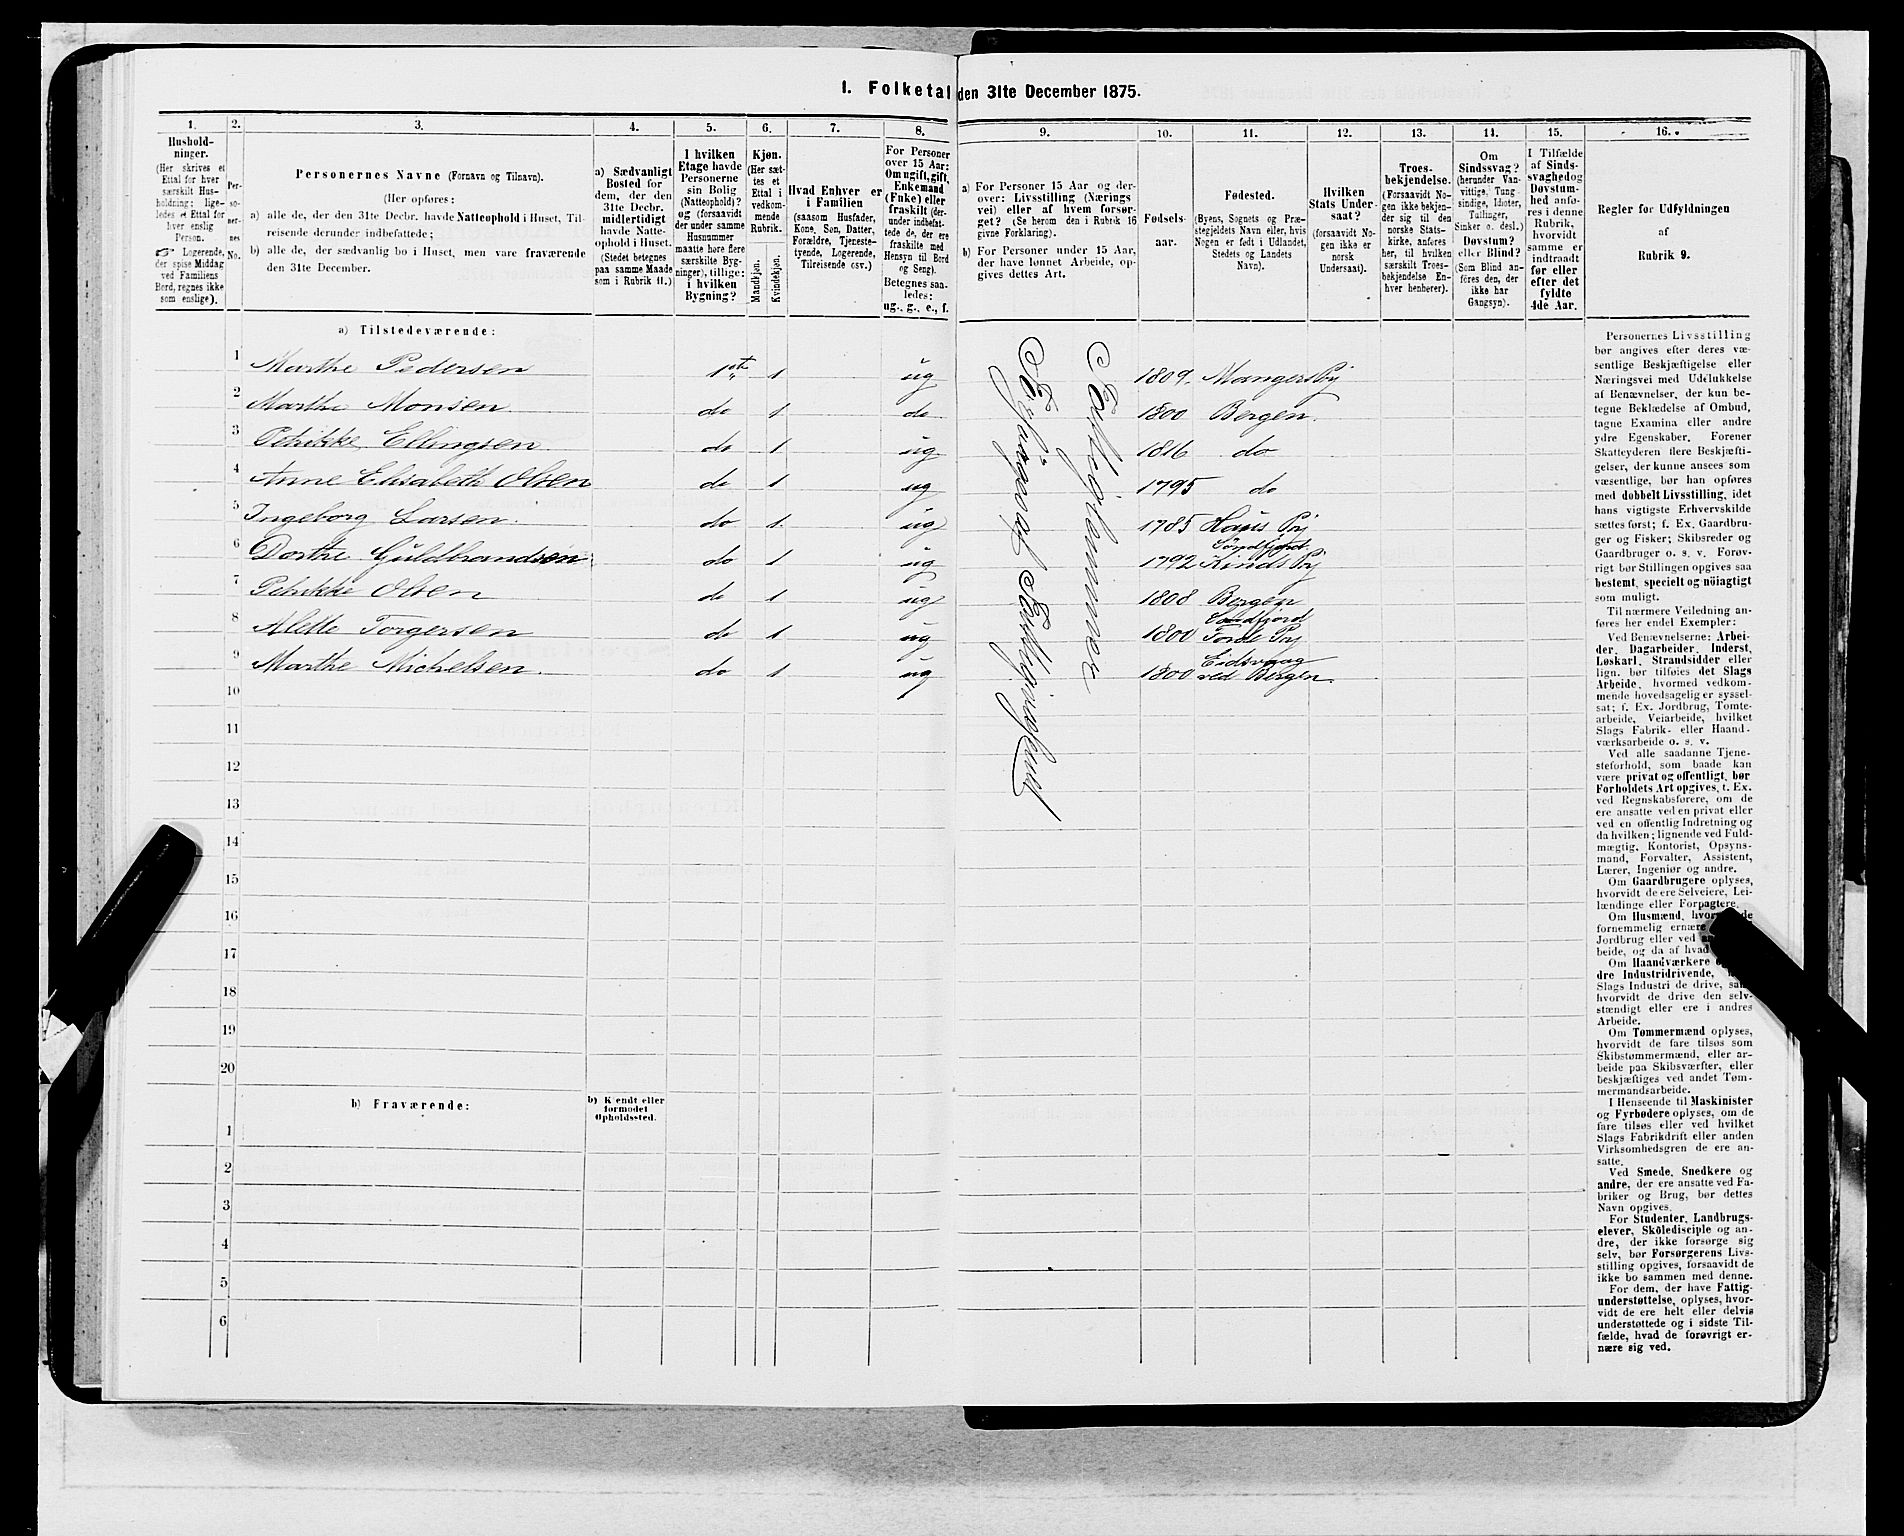 1. Folketal den 31te December 1875.
1.
Hushold-
ninger.
(Her skrives et
Ettal for hver
særskilt Hus-
holdning; lige-
ledes et Ettal for
hver enslig
Person.
Logerende,
der spise Middag
ved Familiens
Bord, regnes ikke
som enslige).
2.
Per-
so-
ner-
nes
No.
3.
Personernes Navne (Fornavn og Tilnavn).
(Her opføres:
a) alle de, der den 31te Decbr. havde Natteophold i Huset, Til-
reisende derunder indbefattede;
b) alle de, der sædvanlig bo i Huset, men vare fraværende
den 31te December.
4.
a) Sædvanligt
Bosted for
dem, der den
31te Decbr.
midlertidigt
havde Natte-
ophold i Huset.
(Stedet betegnes
paa samme Maade
som i Rubrik 11.)
5.
I hvilken
Etage havde
Personerne
sin Bolig
(Natteophold)?
og (forsaavidt
der under samme
Husnummer
maatte høre flere
særskilte Byg-
ninger), tillige:
i hvilken
Bygning?
6.
Kjøn.
(Her sæt-
tes et
Ettal i
vedkom-
mende
Rubrik.
Mandkjøn.
Kvindekjøn.
7.
Hvad Enhver er
i Familien
(saasom Husfader,
Kone, Søn, Datter,
Forældre, Tjeneste-
tyende, Logerende,
Tilreisende osv.)
8.
For Personer
over 15 Aar:
Om ugift, gift,
Enkemand
(Enke) eller
fraskilt (der-
under indbefat-
tede de, der ere
fraskilte med
Hensyn til Bord
og Seng).
Betegnes saa-
ledes:
ug., g., e., f.
9.
a) For Personer 15 Aar og der-
over: Livsstilling (Nærings
vei) eller af hvem forsør-
get? (Se herom den i Rubrik 16
givne Forklaring).
b) For Personer under 15 Aar,
der have lønnet Arbeide, op-
gives dettes Art.
10.
Fødsels-
aar.
11.
Fødested.
(Byens, Sognets og Præ-
stegjeldets Navn eller, hvis
Nogen er født i Udlandet,
Stedets og Landets
Navn).
12.
Hvilken
Stats Under-
saat?
(forsaavidt No-
gen ikke er
norsk
Undersaat).
13.
Troes-
bekjendelse.
(Forsaavidt No-
gen ikke bekjen-
der sig til den
norske Stats-
kirke, anføres
her, til hvilken
særskilt Troes-
bekjendelse En-
hver henhører).
14.
Om
Sindssvag?
(herunder Van-
vittige, Tung-
sindige, Idioter,
Tullinger,
Sinker o. desl.)
Døvstum?
eller Blind?
(Som Blind an-
føres den, der
ikke har
Gangsyn).
15.
I Tilfælde
af Sinds-
svaghed og
Døvstum-
hed anfø-
res i denne
Rubrik,
hvorvidt
samme er
indtraadt
før eller
efter det
fyldte
4de Aar.
16.
Regler for Udfyldningen
af
Rubrik 9.
a) Tilstedeværende:
1 Marthe Pedersen 1ste 1 ug 1809. Manger Pgj
2 Marthe Monsen do 1 do 1800 Bergen.
3 Petrikke Ellingsen do 1 ug 1816 do
4 Anne Elisabeth Olsen do 1 ug 1795 do
5 Ingeborg Larsen. do 1 ug 1785 Haus Pgj
6 Dorthe Guldbrandsen do 1 ug 1792 Søndfjord Kinds Pgj
7 Petrikke Olsen do 1 ug 1808 Bergen
8 Alette Torgersen do 1 ug 1800 Søndfjord Førde Pgj
9 Marthe Michelsen. do 1 ug 1800 Eidsvaag ved Bergen.
10
11
12
13
14
15
16
17
18
19
20
b) Fraværende:
b) Kjendt eller
formodet
Opholdssted.
1
2
3
4
5
6
Personernes Livsstilling
bør angives efter deres væ-
sentlige Beskjæftigelse eller
Næringsvei med Udelukkelse
af Benævnelser, der kun be-
tegne Beklædelse af Ombud,
tagne Examina eller andre
ydre Egenskaber. Forener
Skatteyderen flere Beskjæfti-
gelser, der kunne ansees som
væsentlige, bør han opføres
med dobbelt Livsstilling, idet
hans vigtigste Erhvervskilde
sættes først; f. Ex. Gaardbru-
ger og Fisker; Skibsreder og
Gaardbruger o. s. v. Forøv-
rigt bør Stillingen opgives saa
bestemt, specielt og nöiagtigt
som muligt.
Til nærmere Veiledning an-
føres her endel Exempler:
Ved Benævnelserne: Arbei-
der, Dagarbeider, Inderst,
Løskarl, Strandsidder eller
lign. bør tilføies det Slags
Arbeide, hvormed vedkom-
mende hovedsagelig er syssel-
sat; f. Ex. Jordbrug, Tomte-
arbeide, Veiarbeide, hvilket
Slags Fabrik- eller Haand-
værksarbeide o. s. v.
Ved alle saadanne Tjene-
steforhold, som baade kan
være privat og offentligt, bør
Forholdets Art opgives, t. Ex.
ved Regnskabsførere, om de
ere ansatte ved en privat eller
ved en offentlig Indretning og
da hvilken; lignende ved Fuld-
mægtig, Kontorist, Opsyns-
mand, Forvalter, Assistent,
Lærer, Ingeniør og andre.
Om Gaardbrugere oplyses,
hvorvidt de ere Selveiere, Lei-
lændinge eller Forpagtere.
Om Husmænd,
fornemmelig ernære
Jordbrug eller ved
beide, og da af hvad
Om Haandværkere
dre Industridrivende,
Slags Industri de drive,
hvorvidt de drive den selv-
stændigt eller ere i andres
Arbeide.
Om Tømmermænd oplyses,
hvorvidt de fare tilsøs som
Skibstømmermænd, eller ar-
beide paa Skibsværfter, eller
beskjæftiges ved andet Tøm-
mermandsarbeide.
I Henseende til Maskinister
og Fyrbødere oplyses, om de
fare tilsøs eller ved hvilket
Slags Fabrikdrift eller anden
Virksomhedsgren de ere an-
satte.
Ved Smede, Snedkere og
andre, der ere ansatte ved Fa-
briker og Brug, bør dettes
Navn opgives.
For Studenter, Landbrugs-
elever, Skoledisciple og an-
dre, der ikke forsørge sig
selv, bør Forsørgerens Livs-
stilling opgives, forsaavidt de
ikke bo sammen med denne.
For dem, der have Fattig-
understøttelse, oplyses, hvor-
vidt de ere helt eller delvis
understøttede og i sidste Til-
fælde, hvad de forøvrigt er-
nære sig ved.